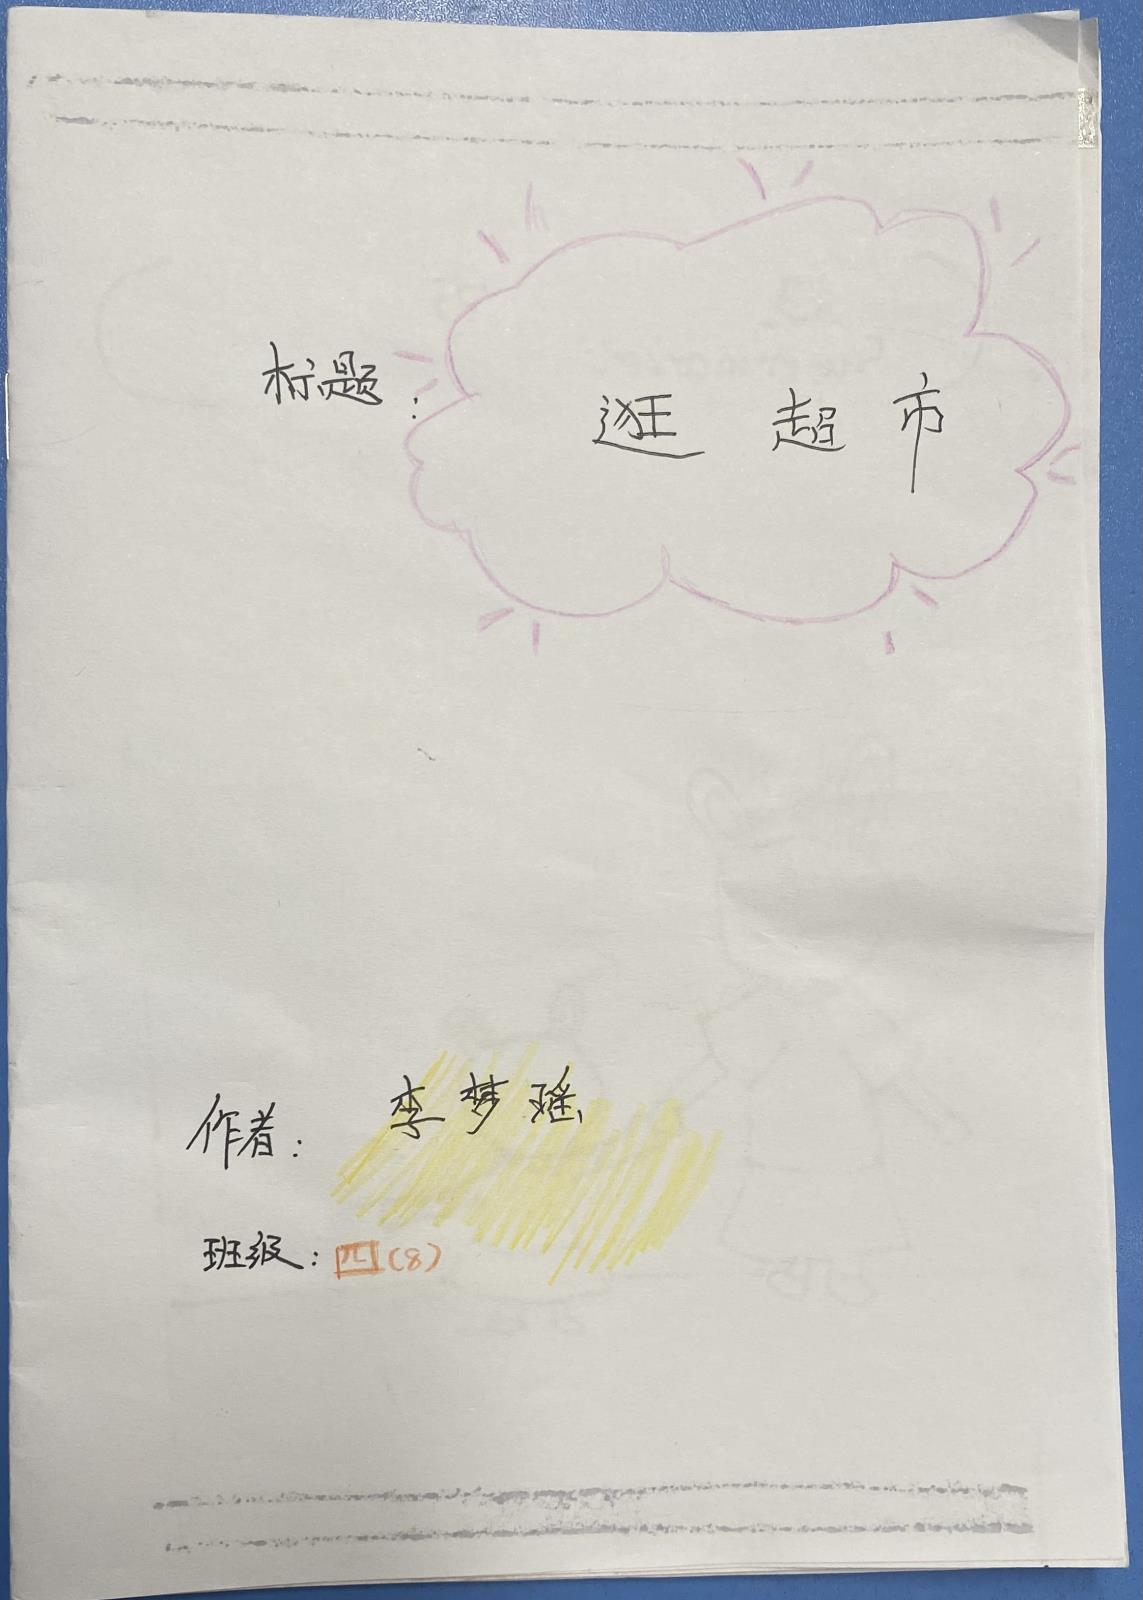 标题: 逛超市
作者: 李梦瑶
班级: 四(8)